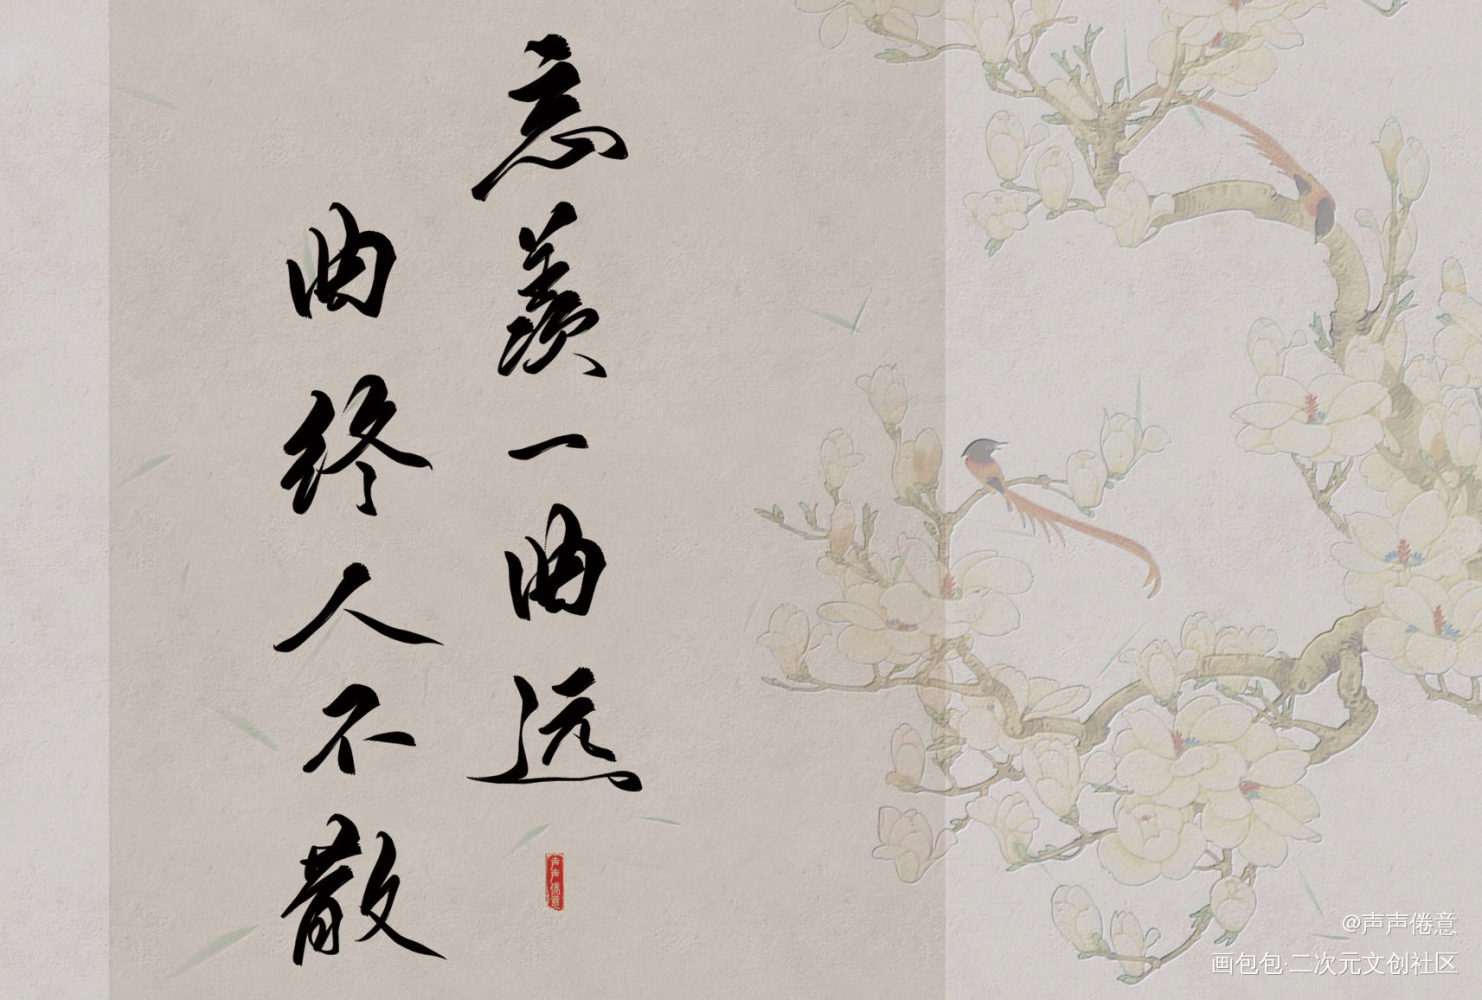 忘羡一曲远
曲终人不散
声声倦意
@声声倦意
画包包·二次元文创社区